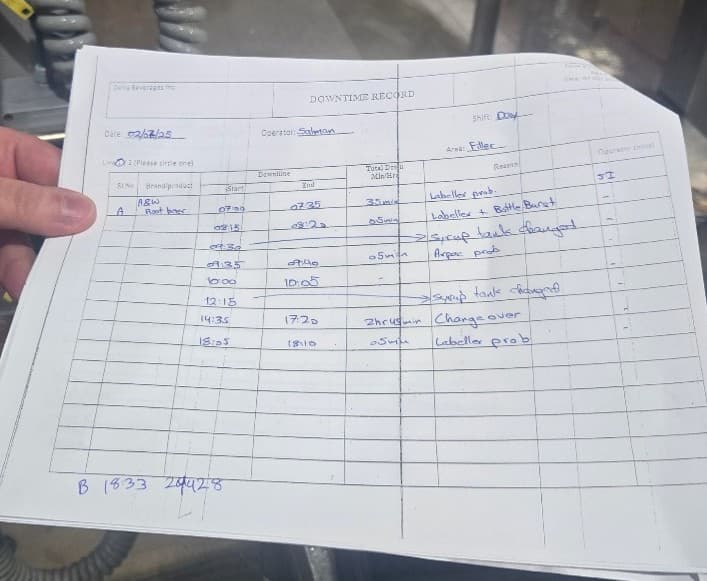 Delta Beverages Inc.
DOWNTIME RECORD
Shift: Day
Date: 02/07/25 Operator: Salman
Area: Filler
Line 1 2 (Please circle one)
Sl.No Brand/product Downtime Start End Total Down Min/Hrs Reason Operator Initial
A A&W Root beer 07:00 07:35 35min Labeller prob. SI
08:15 08:20 05min Labeller + Bottle Burst -
09:30 Syrup tank changed -
09:35 09:40 05min prob -
10:00 10:05 - -
12:15 Syrup tank changed -
14:35 17:20 2hr45min Changeover -
18:05 18:10 05min Labeller prob -
B 1833 24428